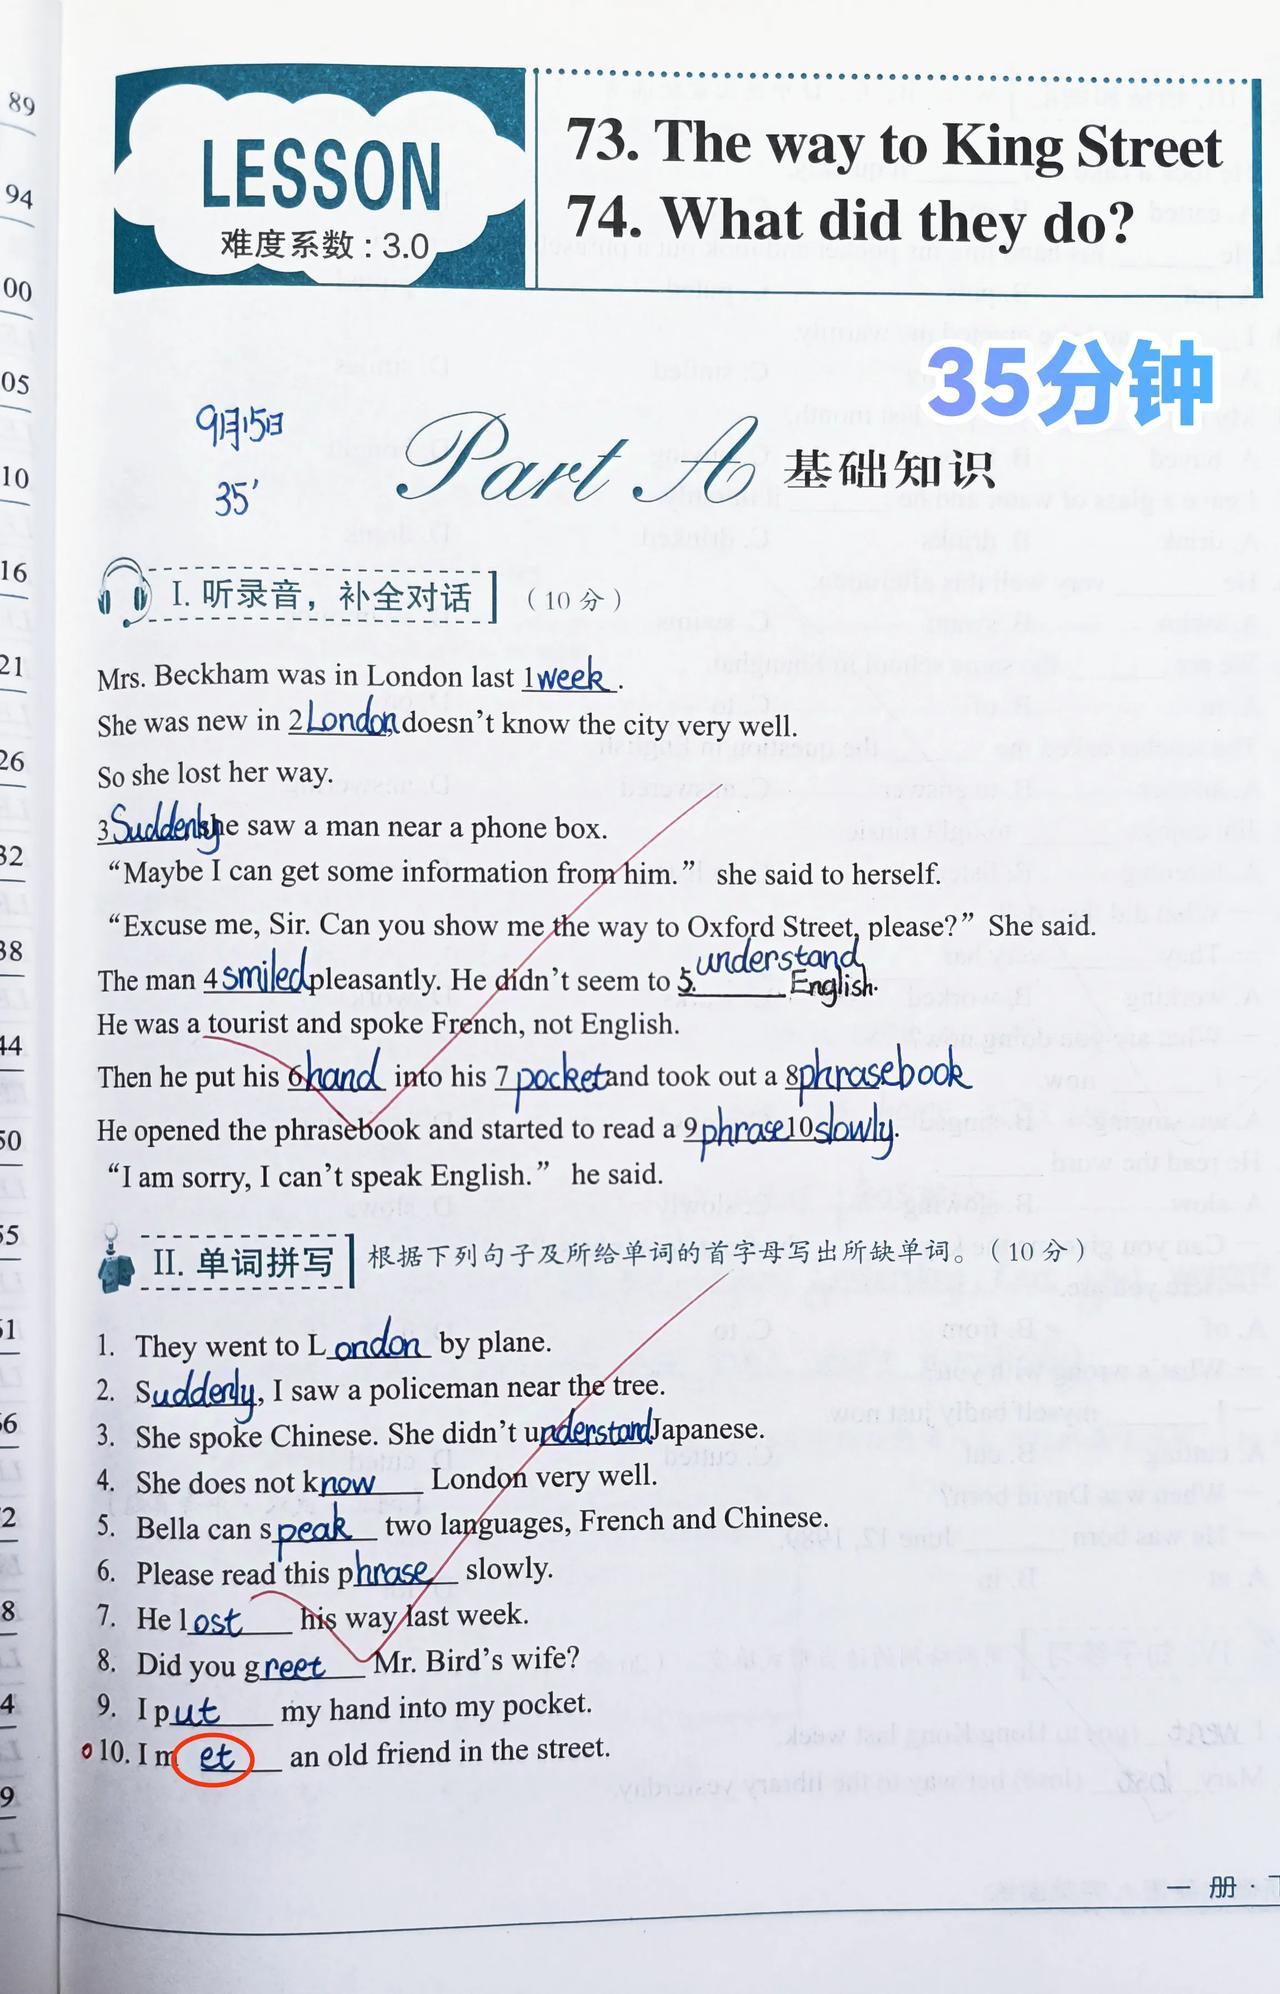 LESSON
难度系数：3.0
73. The way to King Street
74. What did they do?
35分钟
9月15日
35'
Part A 基础知识
I. 听录音，补全对话 （10 分）
Mrs. Beckham was in London last 1 week.
She was new in 2 London, doesn't know the city very well.
So she lost her way.
3 Suddenly she saw a man near a phone box.
“Maybe I can get some information from him.” she said to herself.
“Excuse me, Sir. Can you show me the way to Oxford Street, please?” She said.
The man 4 smiled pleasantly. He didn't seem to 5. understand English.
He was a tourist and spoke French, not English.
Then he put his 6 hand into his 7 pocket and took out a 8 phrasebook
He opened the phrasebook and started to read a 9 phrase 10 slowly.
“I am sorry, I can't speak English.” he said.
II. 单词拼写 根据下列句子及所给单词的首字母写出所缺单词。（10 分）
1. They went to London by plane.
2. Suddenly, I saw a policeman near the tree.
3. She spoke Chinese. She didn't understand Japanese.
4. She does not know London very well.
5. Bella can speak two languages, French and Chinese.
6. Please read this phrase slowly.
7. He lost his way last week.
8. Did you greet Mr. Bird's wife?
9. I put my hand into my pocket.
10. I met an old friend in the street.
一 册 ·
89
94
00
05
10
16
21
26
32
38
44
50
55
51
56
2
8
4
9